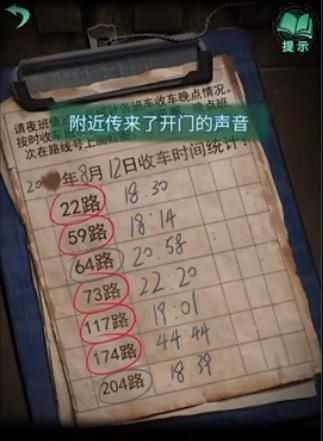 提示
请夜班
各班车收车晚点情况。
按时收车
晚点班
次在路线号上
附近传来了开门的声音
20 年8月12日收车时间统计:
22路 18:30
59路 18:14
64路 20:58
73路 22:20
117路 19:01
174路 44:44
204路 18:39